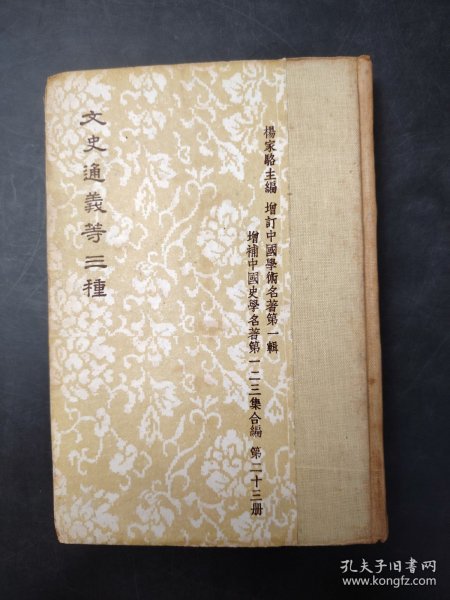 文史通義等三種
楊家駱主編 增訂中國學術名著第一輯
增補中國史學名著第一二三集合編 第二十三册
孔夫子旧书网
www.kongfz.com